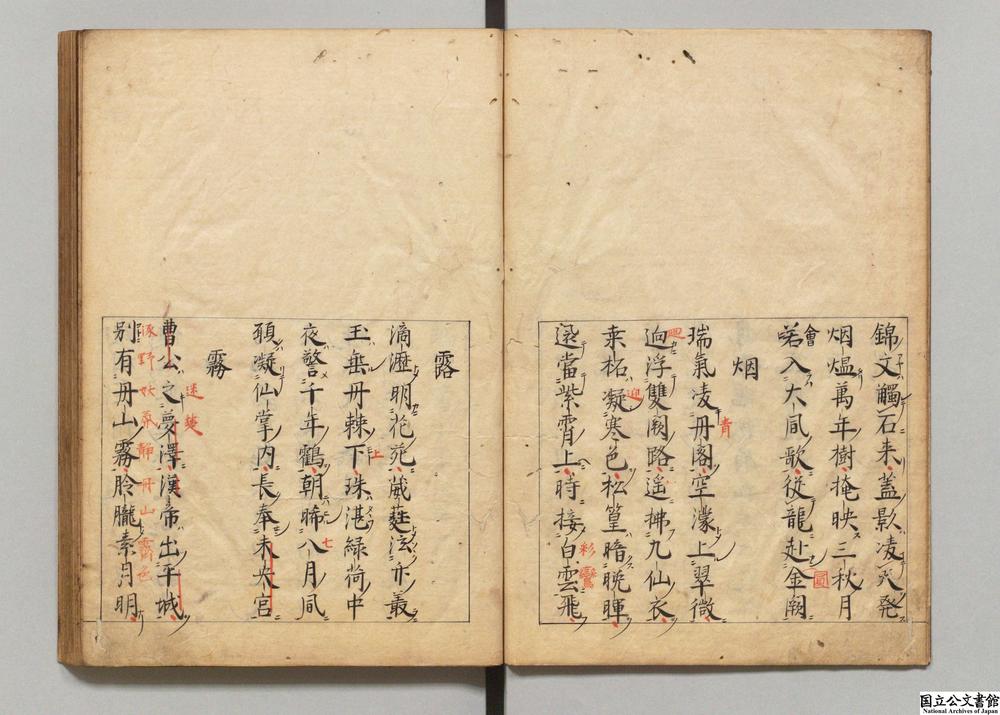 錦文觸石来蓋影凌天発
烟熅萬年樹掩映三秋月
會入大風歌従龍赴金闕
圓
烟
瑞氣凌丹閣空濛上翠微
青
迥浮雙闕路遥拂九仙衣
桒柘凝寒色松篁暗晩暉
迎
還當紫霄上時接白雲飛
彩鸞
露
滴瀝明花苑葳蕤泫竹叢
玉垂丹棘下珠湛緑荷中
上
夜警千年鶴朝晞八月風
七
願凝仙掌内長奉未央宮
霧
曹公之夢澤漢帝出平城
迷楚
涿野妖氛静丹山霽色
別有丹山霧朎朧素月明
国立公文書館
National Archives of Japan